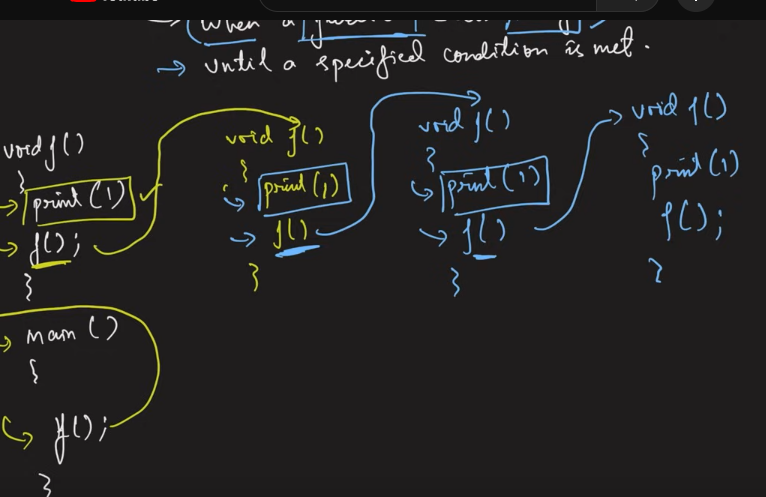 When a
until a specified condition is met.
void f()
{
print (1)
f();
}
void f()
{
print(1)
f()
}
void f()
{
print(1)
f()
}
void f()
{
print(1)
f();
}
main ()
{
f();
}